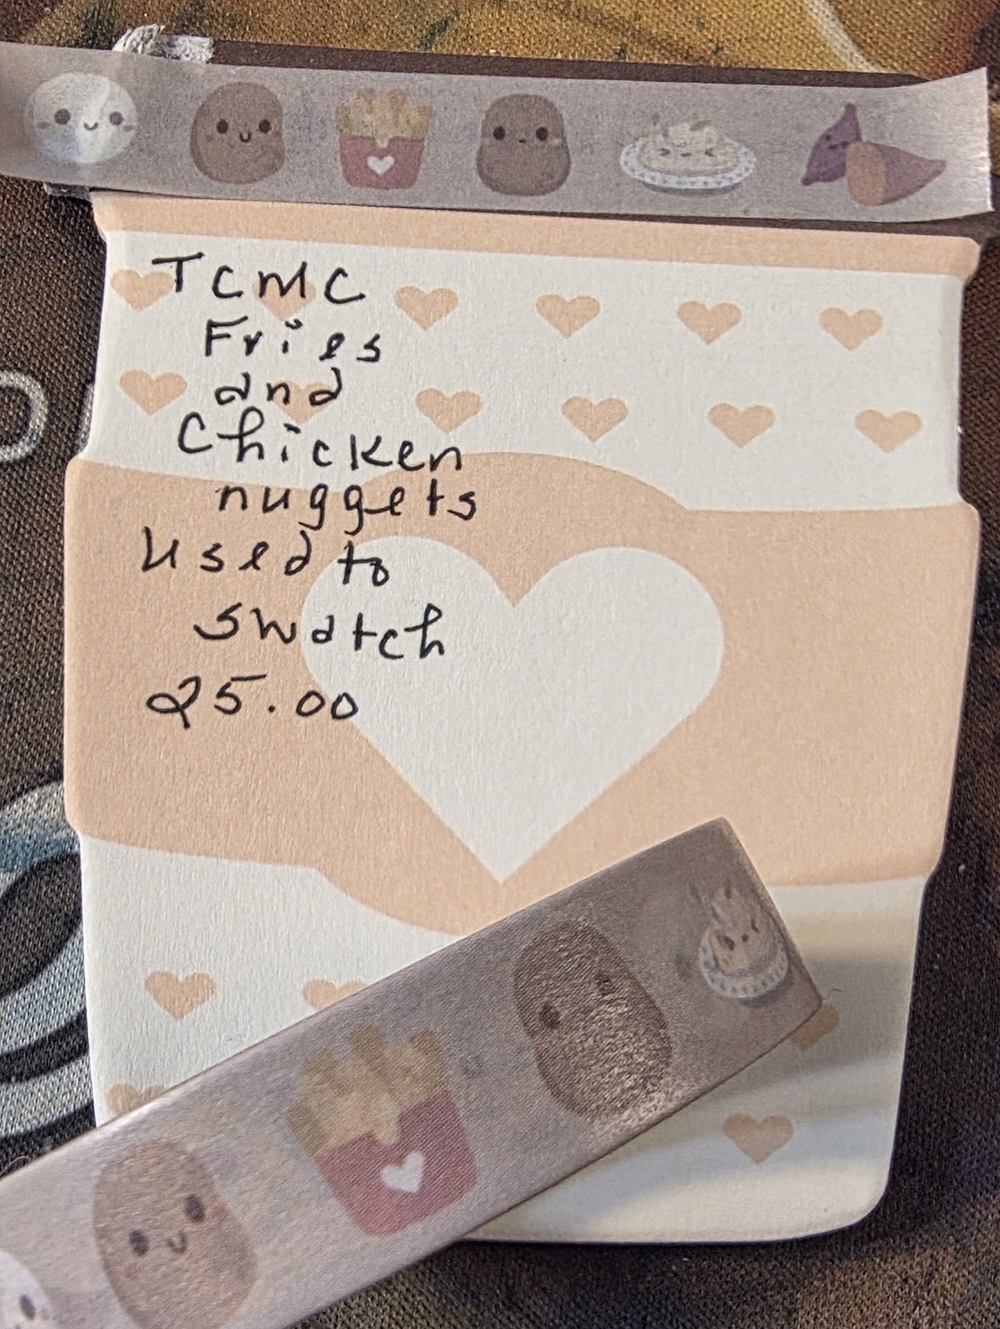 TCMC
Fries
and
Chicken
nuggets
Used to
swatch
25.00